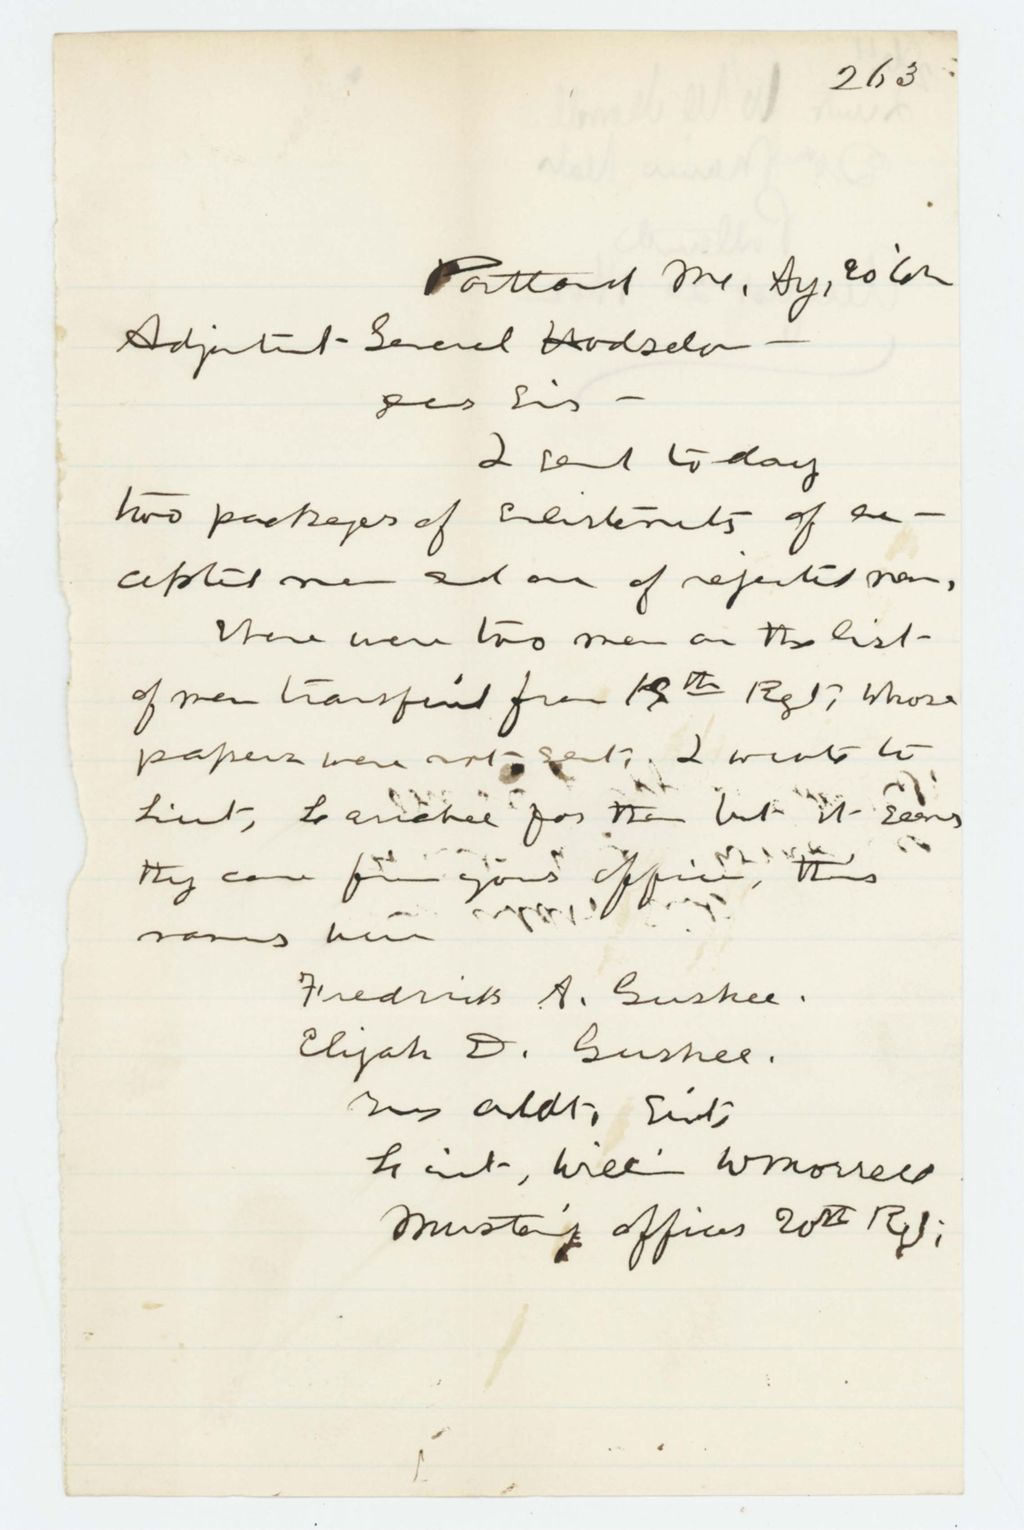 263
Portland Me. Ag, 20 '62
Adjutant General Hodsdon —
Dear Sir —
I send today
two packages of enlistments of ac—
cepted men and one of rejected men.
There were two men on the list
of men transferred from 19th Regt, whose
papers were not sent, I wrote to
Lieut, Larrabee for them but it seems
they came from your office, their
names were
Fredrick A. Gushee.
Elijah D. Gushee.
Your obdt, Svt
Lieut, William W Morrell
Mustering officer 20th Rgt;